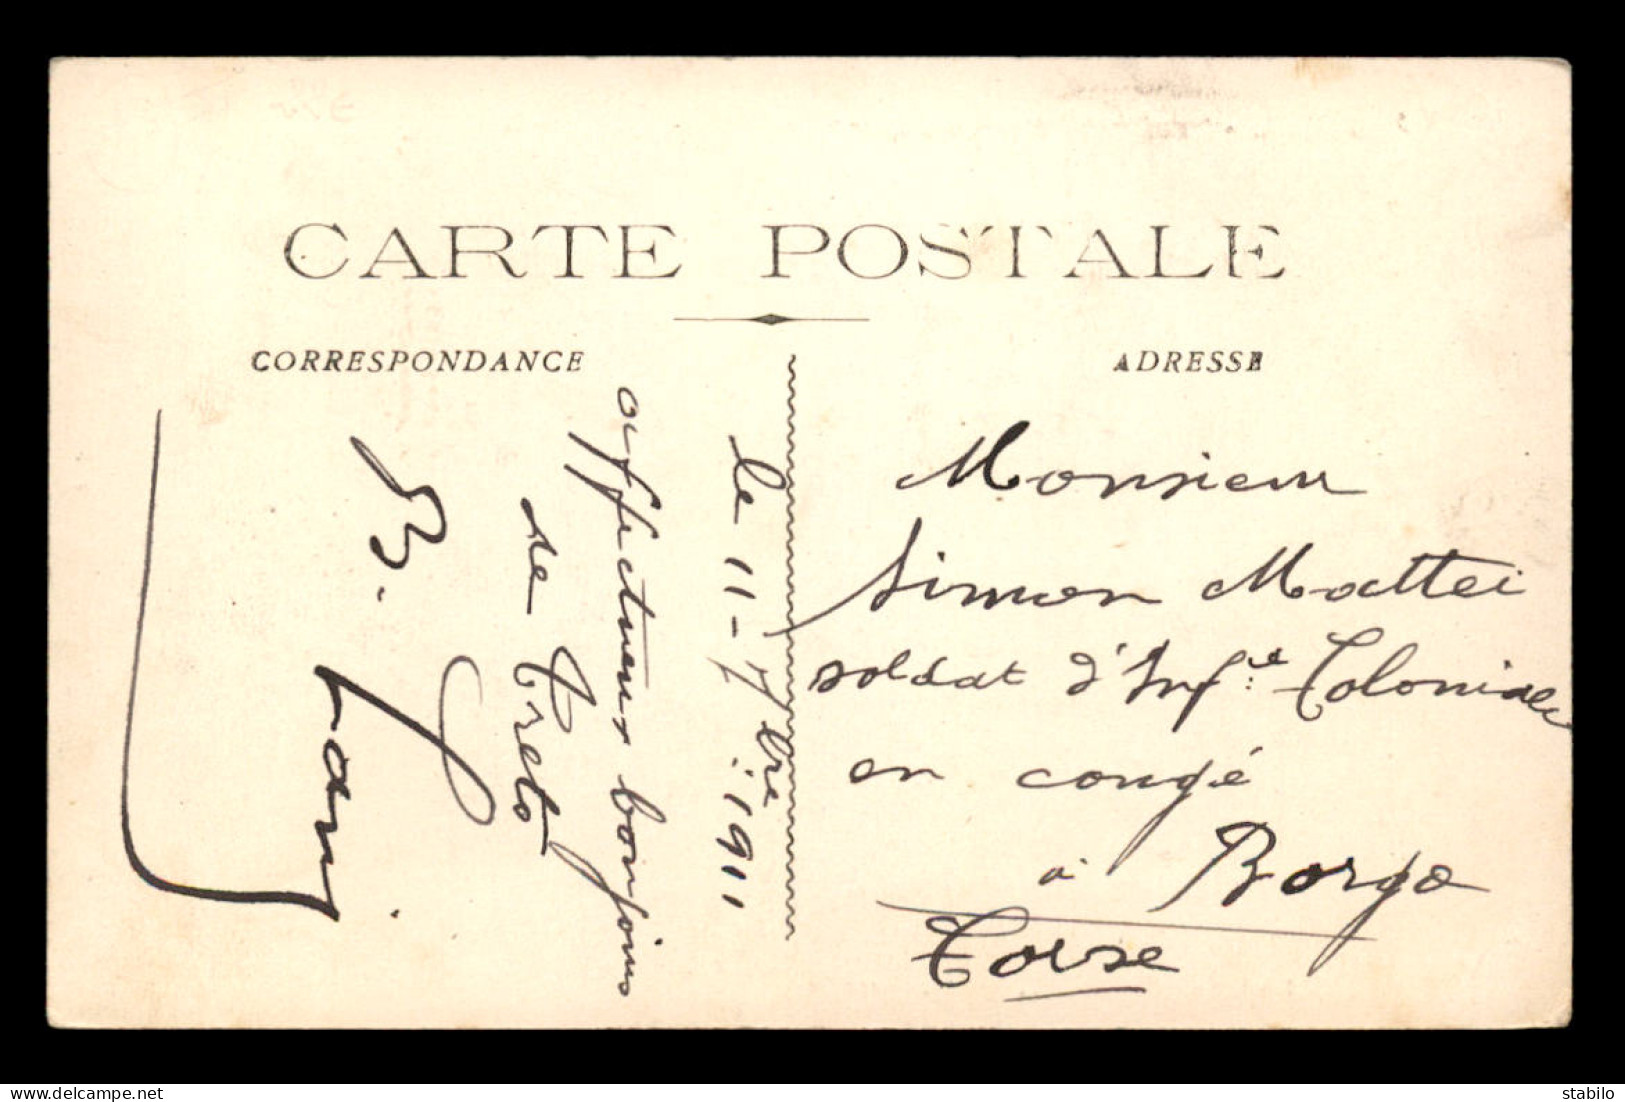 CARTE POSTALE
CORRESPONDANCE
ADRESSE
le 11 - 7bre : 1911
affectueux bonjours
de Creto
B. Lani
Monsieur
Simon Mattei
soldat d'Inf.ie Coloniale
en congé
à Borgo
Corse
delcampe.net
stabilo